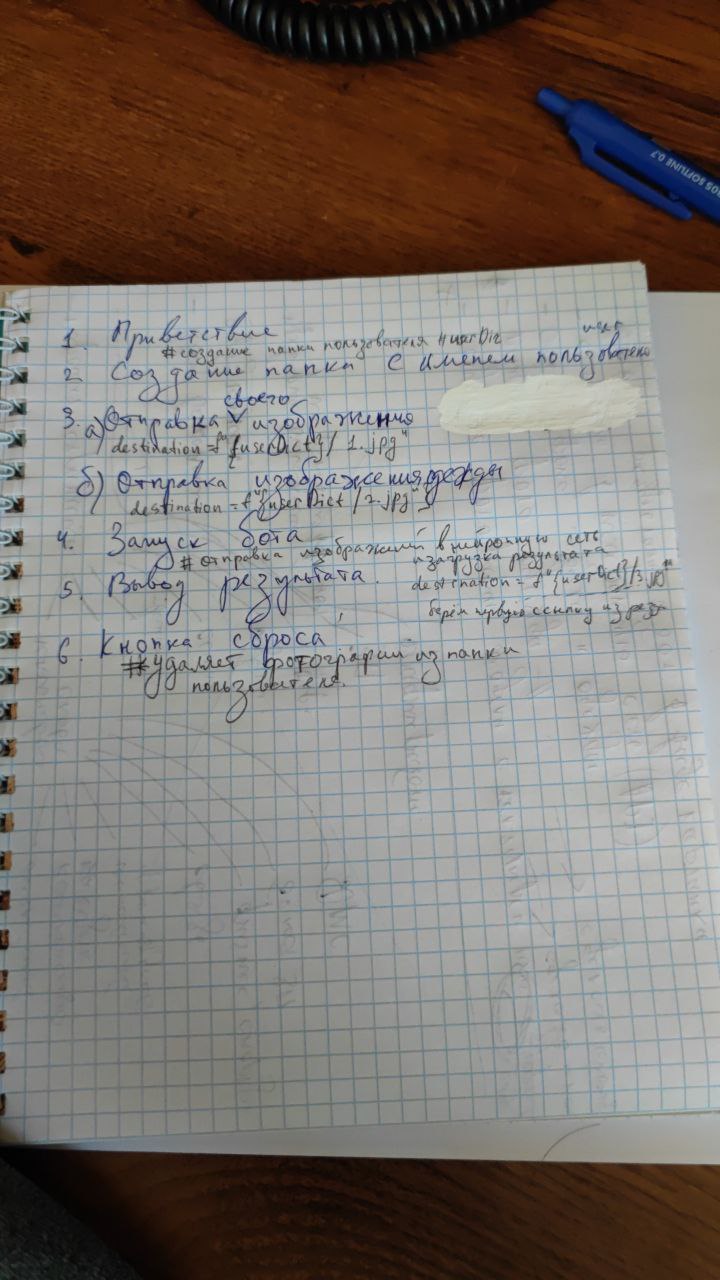 SOFTLINE 0.7
1. Приветствие
#создание папки пользователя #userDir
2 Создание папки с именем пользователя
своего
3. а) Отправка V изображения
destination = f"{userDict}/1.jpg"
б) Отправка изображения одежды
destination = f"{userDict/2.jpg"}
4. Запуск бота
# отправка изображений в нейронную сеть
и загрузка результата
5. Вывод результата.
destination = f"{userDict}/3.jpg"
берём первую ссылку из
6. Кнопка сброса
#удаляет фотографии из папки
пользователя.